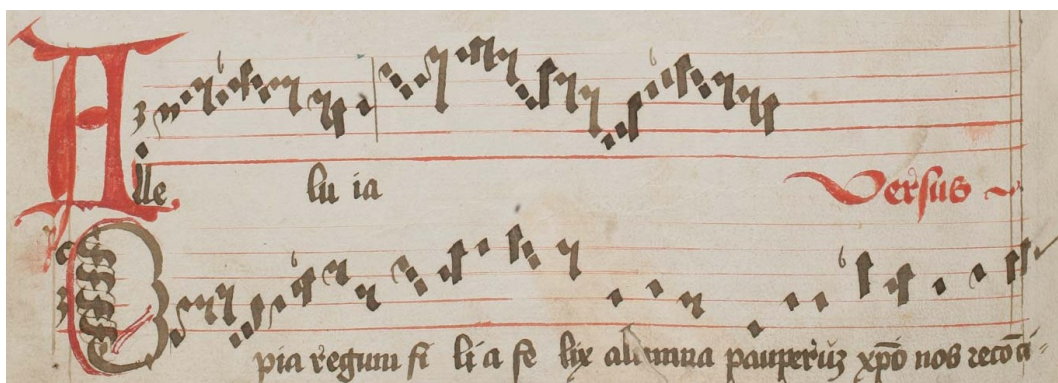 Alle lu ia Versus
O pia regum fi li a fe lix alumna pauperū xp̄o nos recōci-